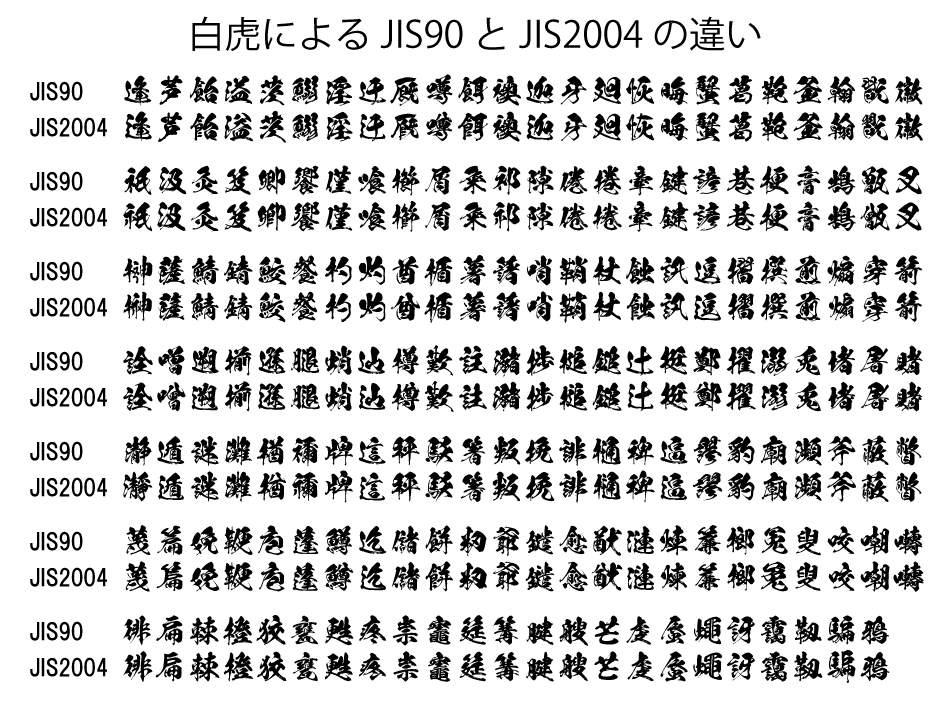 白虎によるJIS90とJIS2004の違い
JIS90 逢芦飴溢茨鰯淫迂厩噂餌襖迦牙廻恢晦蟹葛鞄釜翰翫徽
JIS2004 逢芦飴溢茨鰯淫迂厩噂餌襖迦牙廻恢晦蟹葛鞄釜翰翫徽
JIS90 祇汲灸笈卿饗僅喰櫛屑粂祁隙倦捲牽鍵諺巷梗膏鵠甑叉
JIS2004 祇汲灸笈卿饗僅喰櫛屑粂祁隙倦捲牽鍵諺巷梗膏鵠甑叉
JIS90 榊薩鯖錆鮫餐杓灼酋楯薯藷哨鞘杖蝕訊逗摺撰煎煽穿箭
JIS2004 榊薩鯖錆鮫餐杓灼酋楯薯藷哨鞘杖蝕訊逗摺撰煎煽穿箭
JIS90 詮噌遡揃遜腿蛸辿樽歎註瀦捗槌鎚辻挺鄭擢溺兎堵屠賭
JIS2004 詮噌遡揃遜腿蛸辿樽歎註瀦捗槌鎚辻挺鄭擢溺兎堵屠賭
JIS90 瀞遁謎灘楢禰牌這秤駁箸叛挽誹樋稗逼謬豹廟瀕斧蔽瞥
JIS2004 瀞遁謎灘楢禰牌這秤駁箸叛挽誹樋稗逼謬豹廟瀕斧蔽瞥
JIS90 蔑篇娩鞭庖蓬鱒迄儲餅籾爺鑓愈猷漣煉簾榔冤叟咬嘲囀
JIS2004 蔑篇娩鞭庖蓬鱒迄儲餅籾爺鑓愈猷漣煉簾榔冤叟咬嘲囀
JIS90 徘扁棘橙狡甕甦疼祟竈筵篝腱艘芒虔蜃蠅訝靄靱騙鴉
JIS2004 徘扁棘橙狡甕甦疼祟竈筵篝腱艘芒虔蜃蠅訝靄靱騙鴉